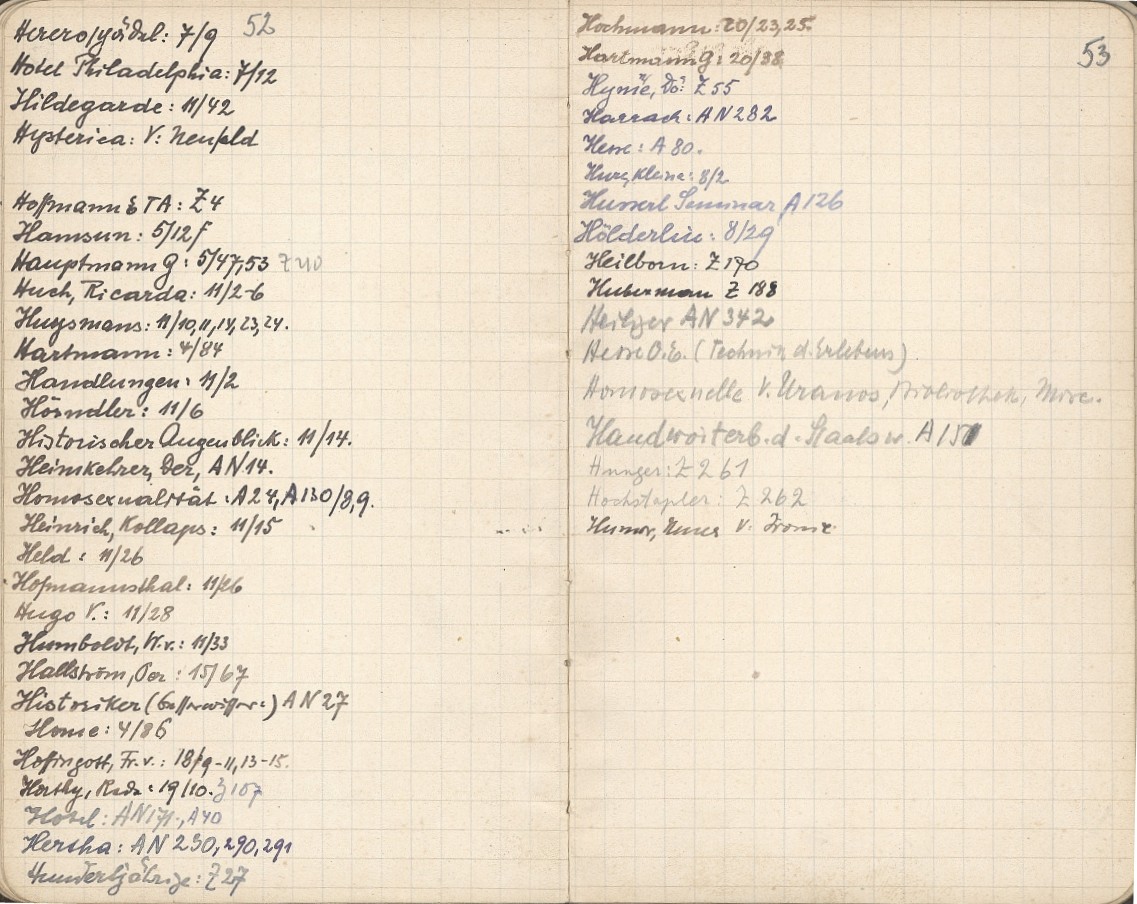 52
Hereroschädel: 7/9
Hotel Philadelphia: 7/12
Hildegarde: 11/42
Hysterica: V: Neufeld
Hoffmann E TA: Z 4
Hamsun: 5/12f
Hauptmann G: 5/47,53 Z 210
Huch, Ricarda: 11/2-6
Huysmans: 11/10,11,14,23,24.
Hartmann: 4/84
Handlungen: 11/2
Hörndler: 11/6
Historischer Augenblick: 11/14.
Heimkehrer, Der, AN 14.
Homosexualität: A 24, A 130/8,9.
Heinrich, Kollaps: 11/15
Held: 11/26
Hofmannsthal: 11/26
Hugo V.: 11/28
Humboldt, W.v.: 11/33
Hallström, Per: 15/67
Historiker (Besserwisser:) AN 27
Home: 4/86
Hoffingott, Fr. v.: 18/9-11,13-15.
Horthy, Rede: 19/10. Z 107
Hotel: AN 171, A 40
Hertha: AN 230, 290, 291
Hundertjährige: Z 27
53
Hochmann: 20/23,25
Hartmann G: 20/38
Hynie, Do: Z 55
Harrach: AN 282
Hesse: A 80.
Hure, Kleine: 8/2
Husserl Seminar A 126
Hölderlin: 8/29
Heilborn: Z 170
Huberman Z 188
Heiliger AN 342
Hesse O.E. (Technik d. Erlebens)
Homosexuelle V. Uranos, Bibliothek, Misc.
Handwörterb. d. Staatsw. A 151
Hunger: Z 261
Hochstapler: Z 262
Humor, Neuer V: Ironie